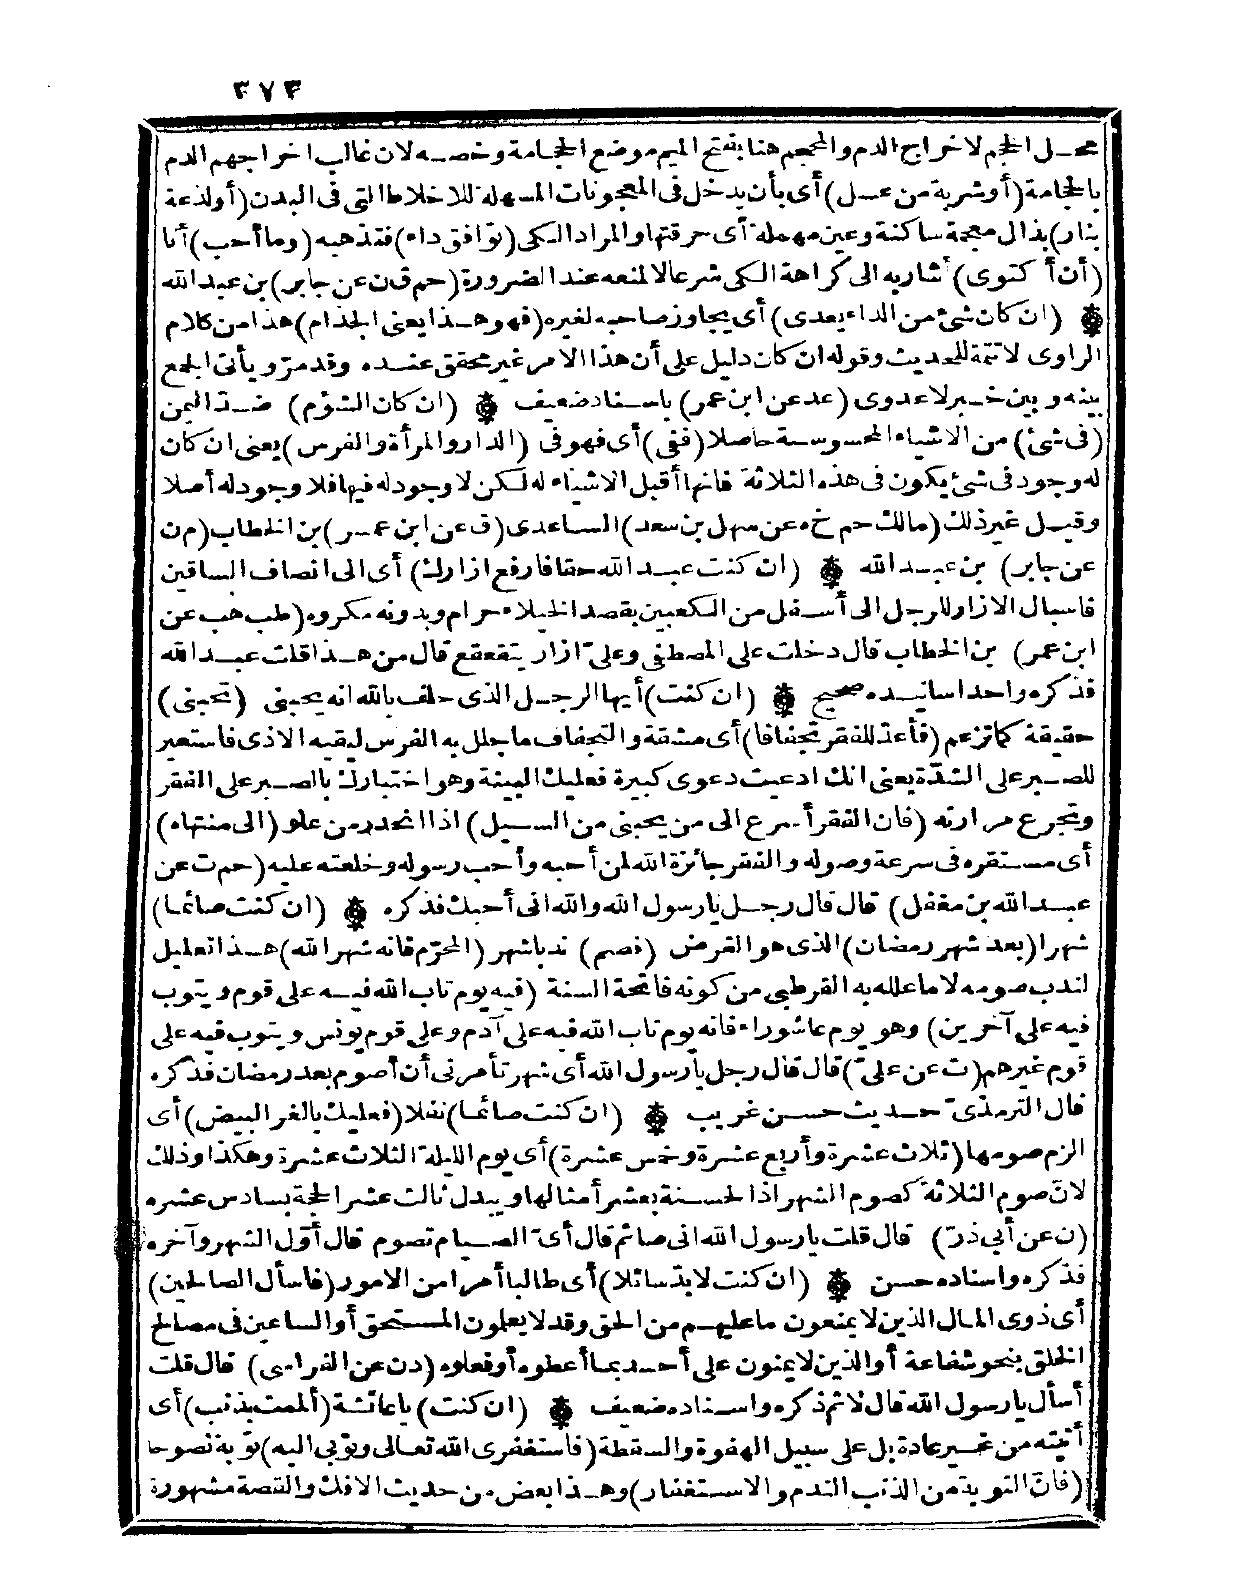 ٣٧٣
محـل الحجم لاخراج الدم والمحجم هنا بفتح الميم موضع الحجامة وخصـه لان غالب اخراجهم الدم
بالحجامة (أوشربة من عسل) أى بأن يدخل فى المعجونات المسهلة للاخلاط التى فى البدن (أولذعة
بنار) بذال معجمة ساكنة وعين مهملة أى حرقتها والمراد الكى (توافق داء) فتذهبه (وما أحب) أنا
(أن أكتوى) أشار به الى كراهة الكى شرعا لا لمنعه عند الضرورة (حم ق ن عن جابر) بن عبد الله
(ان كان شئ من الداء يعدى) أى يجاوز صاحبه لغيره (فهو هـذا يعنى الجذام) هذا من كلام
الراوى لا تتمة للحديث وقوله ان كان دليل على أن هذا الامر غير محقق عنده وقد مرّ ويأتى الجمع
بينه وبين خـبر لا عدوى (عد عن ابن عمر) باسناد ضعيف (ان كان الشؤم) ضـد اليمن
(فى شئ) من الاشياء المحسوسة حاصلا (ففى) أى فهو فى (الدار والمرأة والفرس) يعنى ان كان
له وجود فى شئ يكون فى هذه الثلاثة فانها أقبل الاشياء له لكن لا وجود له فيها فلا وجود له أصلا
وقيـل غير ذلك (مالك حم خ ه عن سهل بن سعد) الساعدى (ق عن ابن عمـر) بن الخطاب (م ن
عن جابر) بن عبـد الله (ان كنت عبـد الله حقا فارفع ازارك) أى الى انصاف الساقين
فاسبال الازار للرجل الى أسـفل من الكعبين بقصد الخيلاء حرام وبدونه مكروه (طب هب عن
ابن عمر) بن الخطاب قال دخلت على المصطفى وعلىّ ازار يتقعقع قال من هـذا قلت عبـد الله
فذكره واحد اسانيـده صحيح (ان كنت) أيها الرجـل الذى حلف بالله انه يحبنى (تحبنى)
حقيقة كما تزعم (فأعدّ للفقر تجفافا) أى مشقة والتجفاف ما جلل به الفرس ليقيه الاذى فاستعير
للصـبر على الشدّة يعنى انك ادعيت دعوى كبيرة فعليك البينة وهو اختبارك بالصـبر على الفقر
وتجرع مرارته (فان الفقر أسرع الى من يحبنى من السـيل) اذا انحدر من علو (الى منتهاه)
أى مستقره فى سرعة وصوله والفقر جائزة الله لمن أحبه وأحب رسوله وخلعته عليه (حم ت عن
عبـد الله بن مغفل) قال قال رجـل يا رسول الله والله انى أحبك فذكره (ان كنت صائما)
شهرا (بعد شهر رمضان) الذى هو الفرض (فصم) ندبا شهر (المحرّم فانه شهر الله) هـذا تعليل
لندب صومه لا ما علله به القرطبى من كونه فاتحة السنة (فيه يوم تاب الله فيـه على قوم ويتوب
فيه على آخرين) وهو يوم عاشوراء فانه يوم تاب الله فيه على آدم وعلى قوم يونس ويتوب فيه على
قوم غيرهم (ت عن علىّ) قال قال رجل يا رسول الله أى شهر تأمرنى أن أصوم بعد رمضان فذكره
قال الترمذىّ حـديث حسن غريب (ان كنت صائما) نفلا (فعليك بالغر البيض) أى
الزم صومها (ثلاث عشرة وأربع عشرة وخمس عشرة) أى يوم الليلة الثلاث عشرة وهكذا وذلك
لانّ صوم الثلاثة كصوم الشهر اذ الحسنة بعشر أمثالها ويبدل ثالث عشر الحجة بسادس عشره
(ن عن أبى ذرّ) قال قلت يا رسول الله انى صائم قال أىّ الصـيام تصوم قال أوّل الشهر وآخره
فذكره واسناده حسن (ان كنت لا بدّ سائلا) أى طالبا أمرا من الامور (فاسأل الصالحين)
أى ذوى المال الذين لا يمنعون ما عليهـم من الحق وقد لا يعلمون المستحق أو الساعين فى مصالح
الخلق بنحو شفاعة أو الذين لا يمنون على أحـد بما أعطوه أو فعلوه (د ن عن الفراسى) قال قلت
أسأل يا رسول الله قال لا ثم ذكره واسـناده ضعيف (ان كنت) يا عائشة (ألممت بذنب) أى
أتيته من غـير عادة بل على سبيل الهفوة والسقطة (فاستغفرى الله تعالى وتوبى اليه) توبة نصوحا
(فانّ التوبة من الذنب الندم والاسـتغفار) وهـذا بعض من حديث الافك والقصة مشهورة